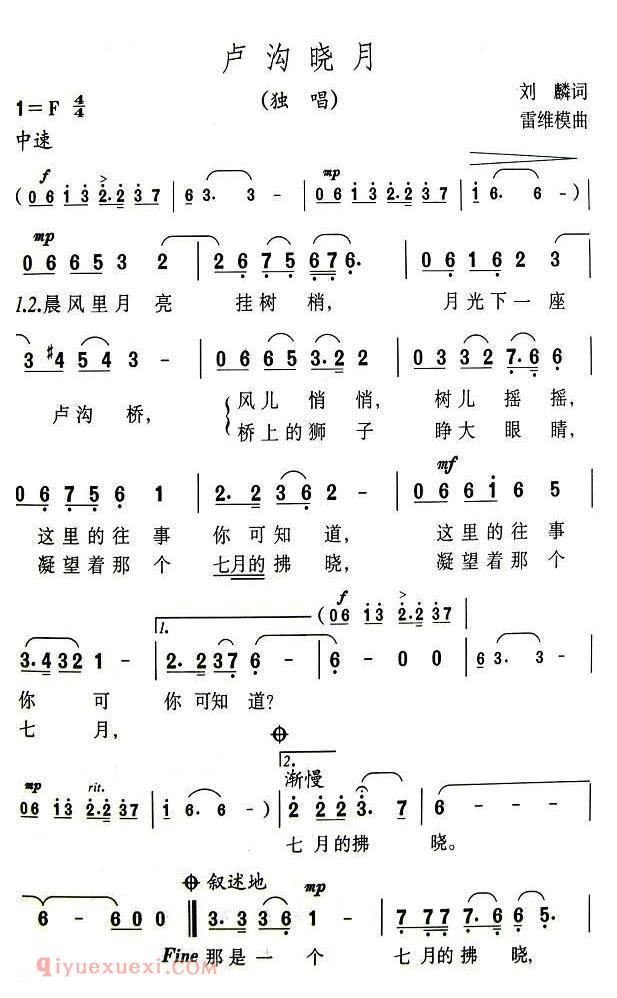 卢沟晓月
(独唱)
1=F 4/4
刘麟词
中速
雷维模曲
f mp
(06 13 2.2 37 | 6 3. 3 - | 06 13 2.2 37 | 1 6. 6 -) |
mp
06 65 3 2 | 26 75 67 6. | 06 16 2 3 |
1.2.晨风里月亮 挂树梢, 月光下一座
3 #4 54 3 - | 06 65 3.22 | 03 32 7.66 6 |
卢沟桥, 风儿悄悄, 树儿摇摇,
桥上的狮子 睁大眼睛,
mf
06 75 6 1 | 2. 2 36 2 - | 06 61 6 5 |
这里的往事 你可知道, 这里的往事
凝望着那个 七月的拂晓, 凝望着那个
f
1. (06 13 2.2 37
3.432 1 - | 2.2237 6 - | 6 - 0 0 | 6 3. 3 - |
你可 你可知道?
七月,
2.
mp rit. 渐慢
06 13 2.2 37 | 1 6. 6 -) | 2 222 3. 7 | 6 - - - |
七月的拂晓。
叙述地 mp
6 - 6 0 0 | 3. 3 36 1 - | 7 777 7.6 65. |
Fine 那是一个 七月的拂晓,
Qiyuexuexi.com